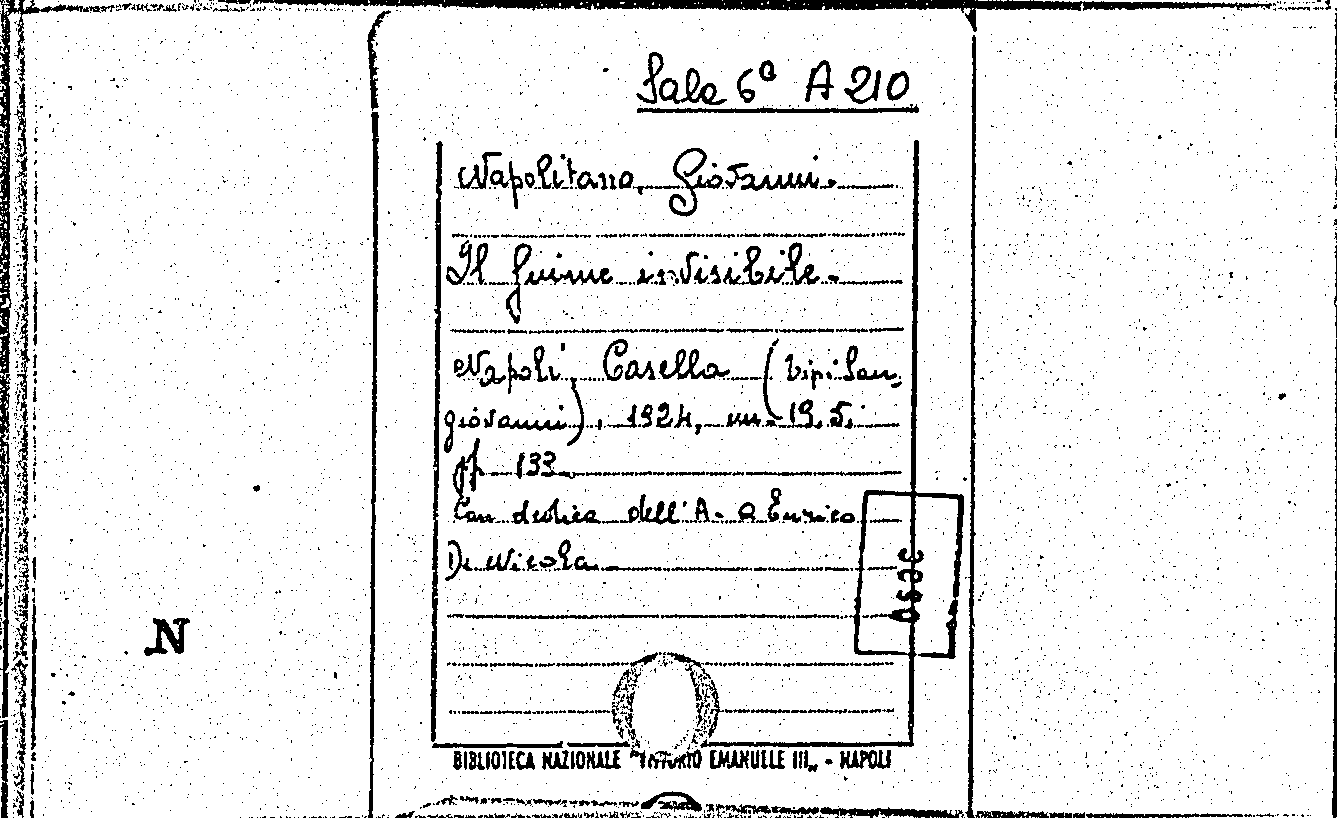 Sala 6ª A 210
Napolitano, Giovanni.
Il fiume invisibile.
Napoli, Casella (tip. San-
giovanni), 1924, in-19.5.
pp. 133.
Con dedica dell'A. a Enrico
De Nicola.
N
BIBLIOTECA NAZIONALE "VITTORIO EMANUELE III„ - NAPOLI